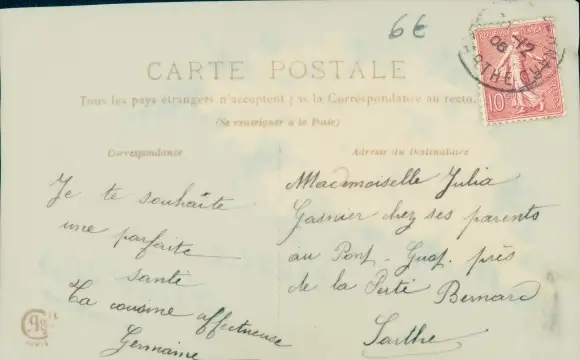 6€
CARTE POSTALE
Tous les pays étrangers n'acceptent pas la Correspondance au recto.
(Se renseigner à la Poste)
Correspondance
Je te souhaîte
une parfaite
santé
Ta cousine affectueuse
Germaine
Adresse du Destinataire
Mademoiselle Julia
Gasnier chez ses parents
au Pont, près
de la Ferté Bernard
Sarthe
10
12
06